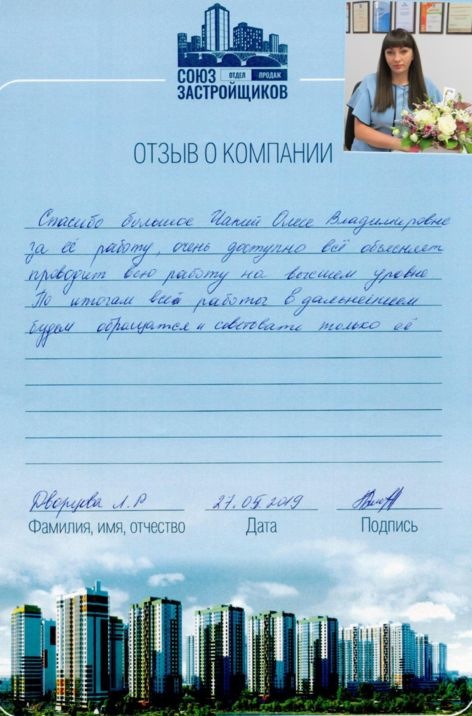 СОЮЗ ОТДЕЛ ПРОДАЖ
ЗАСТРОЙЩИКОВ
ОТЗЫВ О КОМПАНИИ
Спасибо большое Олесе Владимировне
за её работу, очень доступно всё объясняет
проводит всю работу на высшем уровне
По итогам всей работы в дальнейшем
будем обращатся и советовать только её
Дворцова Л.Р 27.05.2019
Фамилия, имя, отчество Дата Подпись